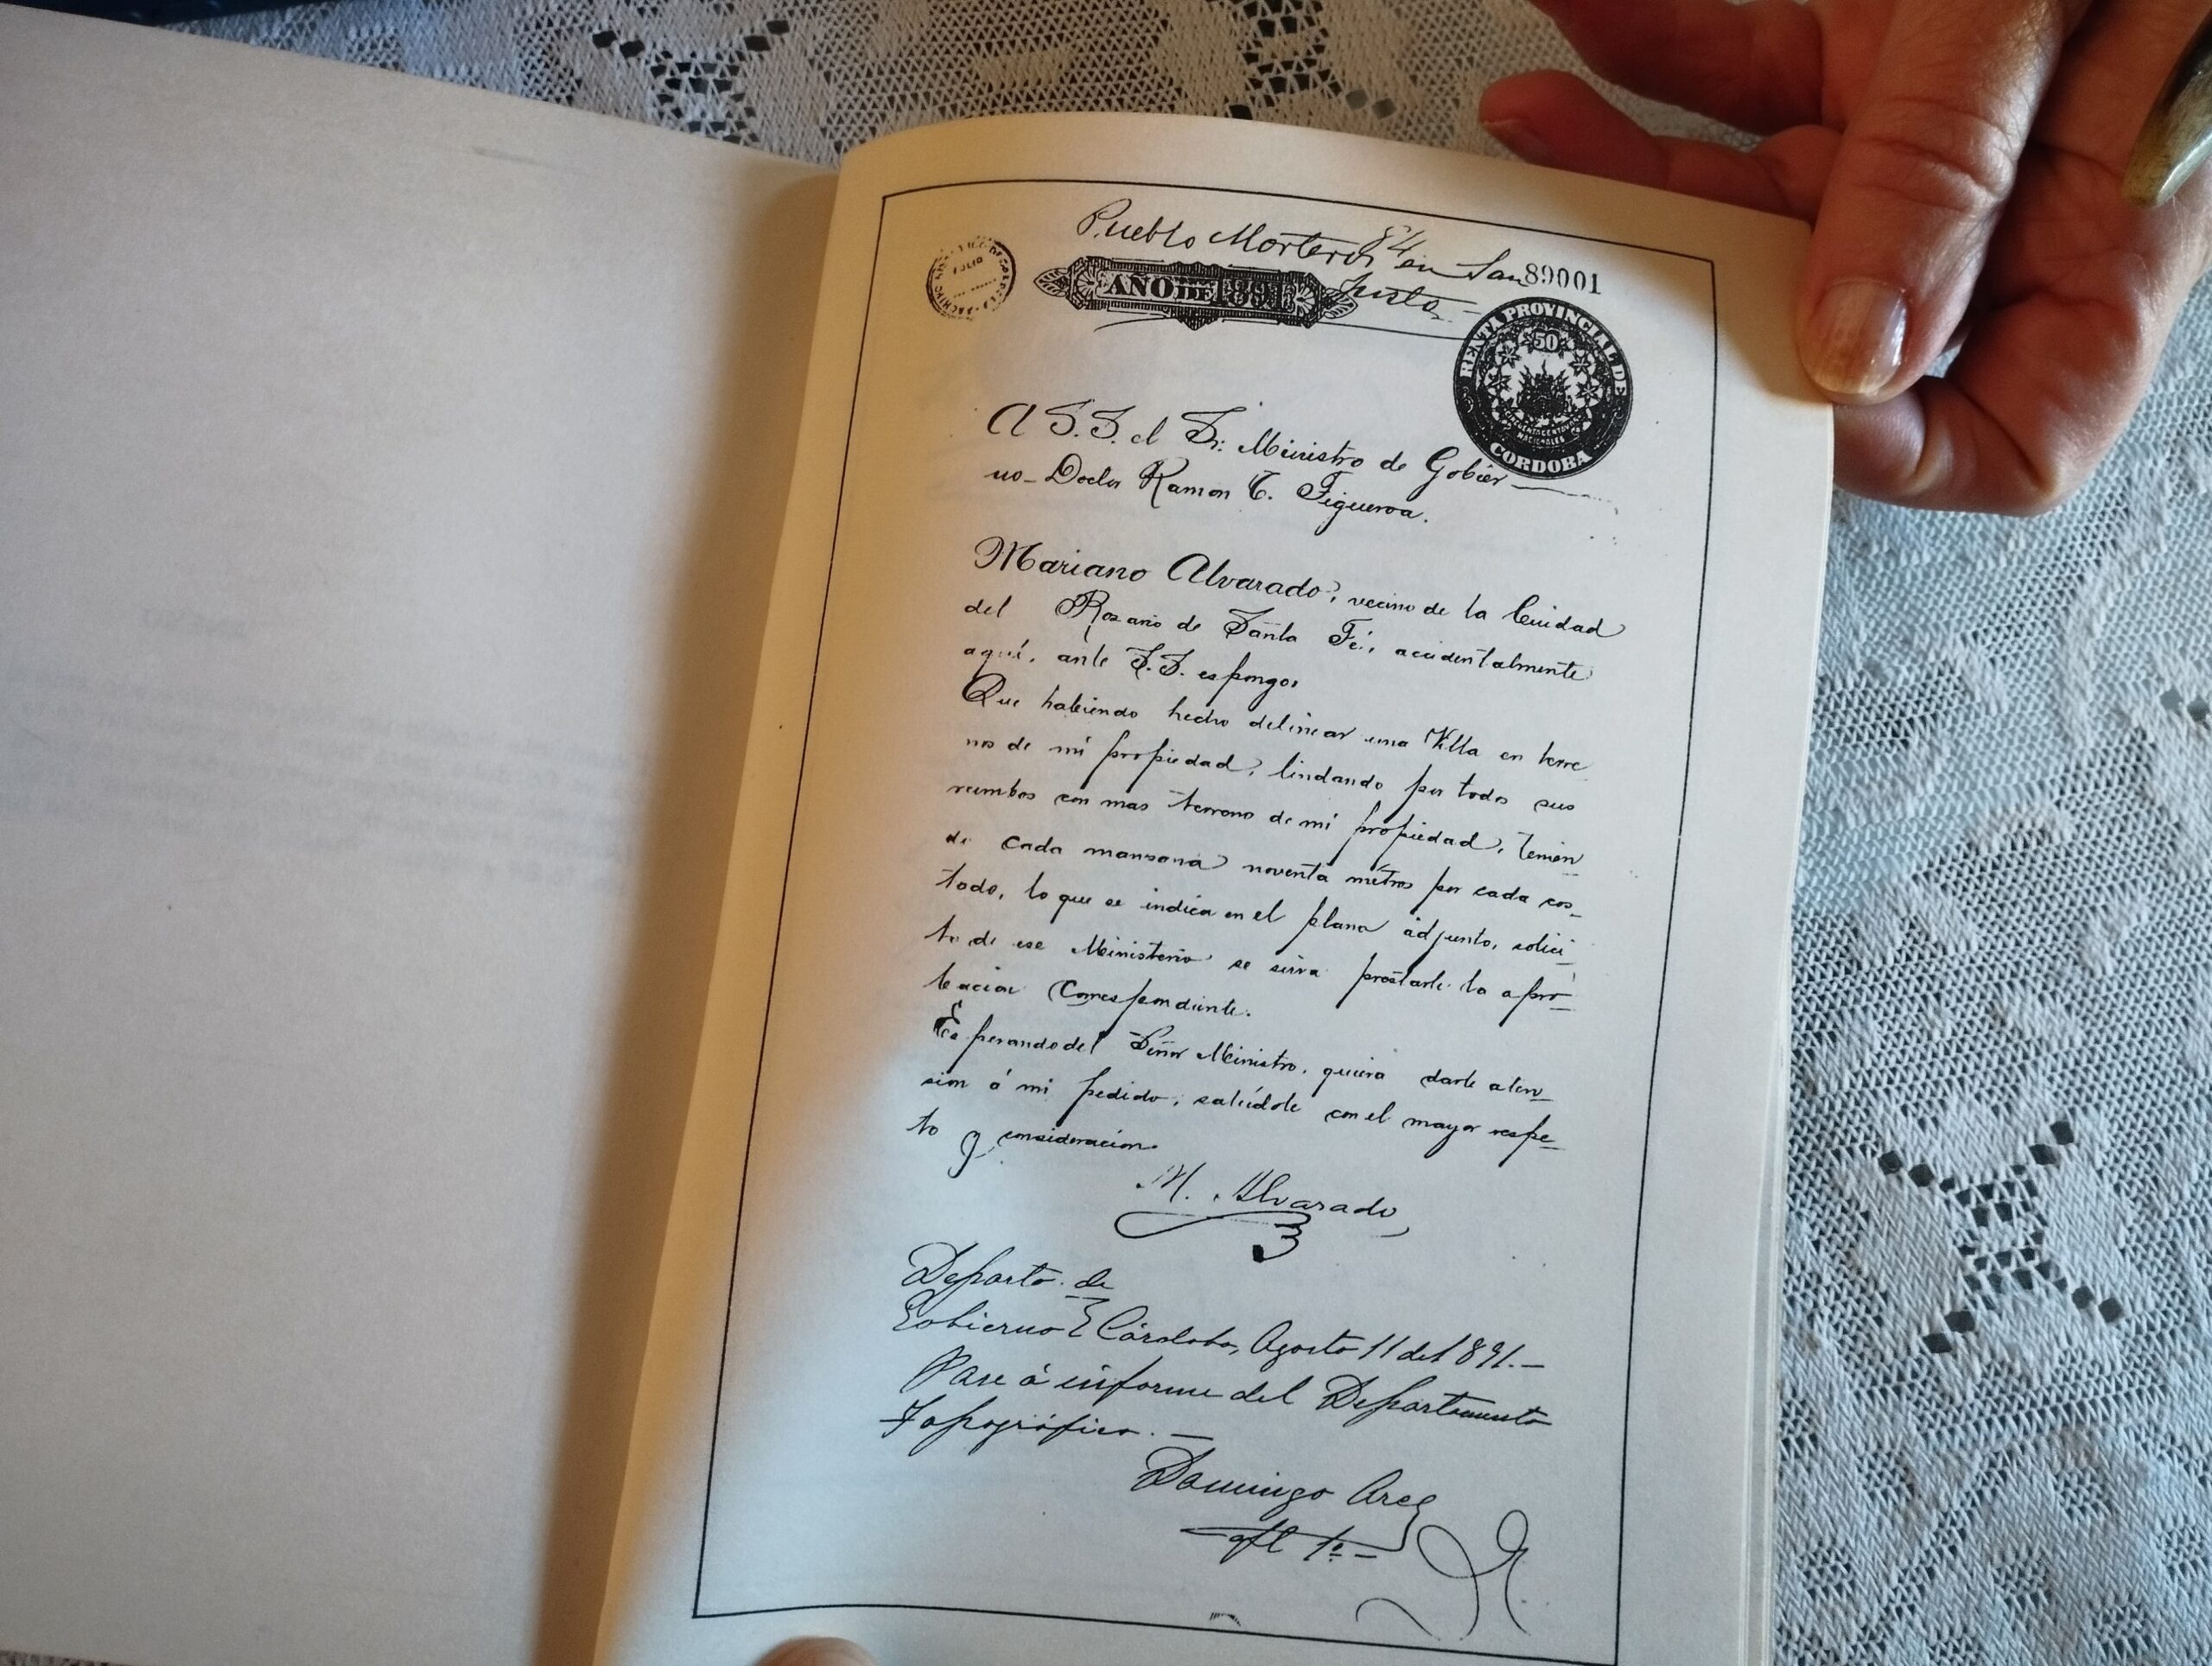 Pueblo Morteros 84 en San
Justo
AÑO DE 1891
89001
RENTA PROVINCIAL DE
50
CINCUENTA CENTAVOS
NACIONALES
CORDOBA
A S.S. el Sr. Ministro de Gobier
no - Doctor Ramon T. Figueroa.
Mariano Alvarado, vecino de la Ciudad
del Rosario de Santa Fé, accidentalmente
aquí, ante S.S. espongo:
Que habiendo hecho delinear una Villa en terre
nos de mi propiedad, lindando por todos sus
rumbos con mas terreno de mi propiedad, tenien
do cada manzana noventa métros por cada cos_
tado, lo que se indica en el plano adjunto, solici
to de ese Ministerio se sirva prestarle la apro_
bacion correspondiente.
Esperando del Señor Ministro, quiera darle aten_
sion á mi pedido, salúdole con el mayor respe_
to y consideracion.
M. Alvarado
Departo. de
Gobierno Córdoba, Agosto 11 del 891.-
Pase á informe del Departamento
Topográfico. -
Domingo